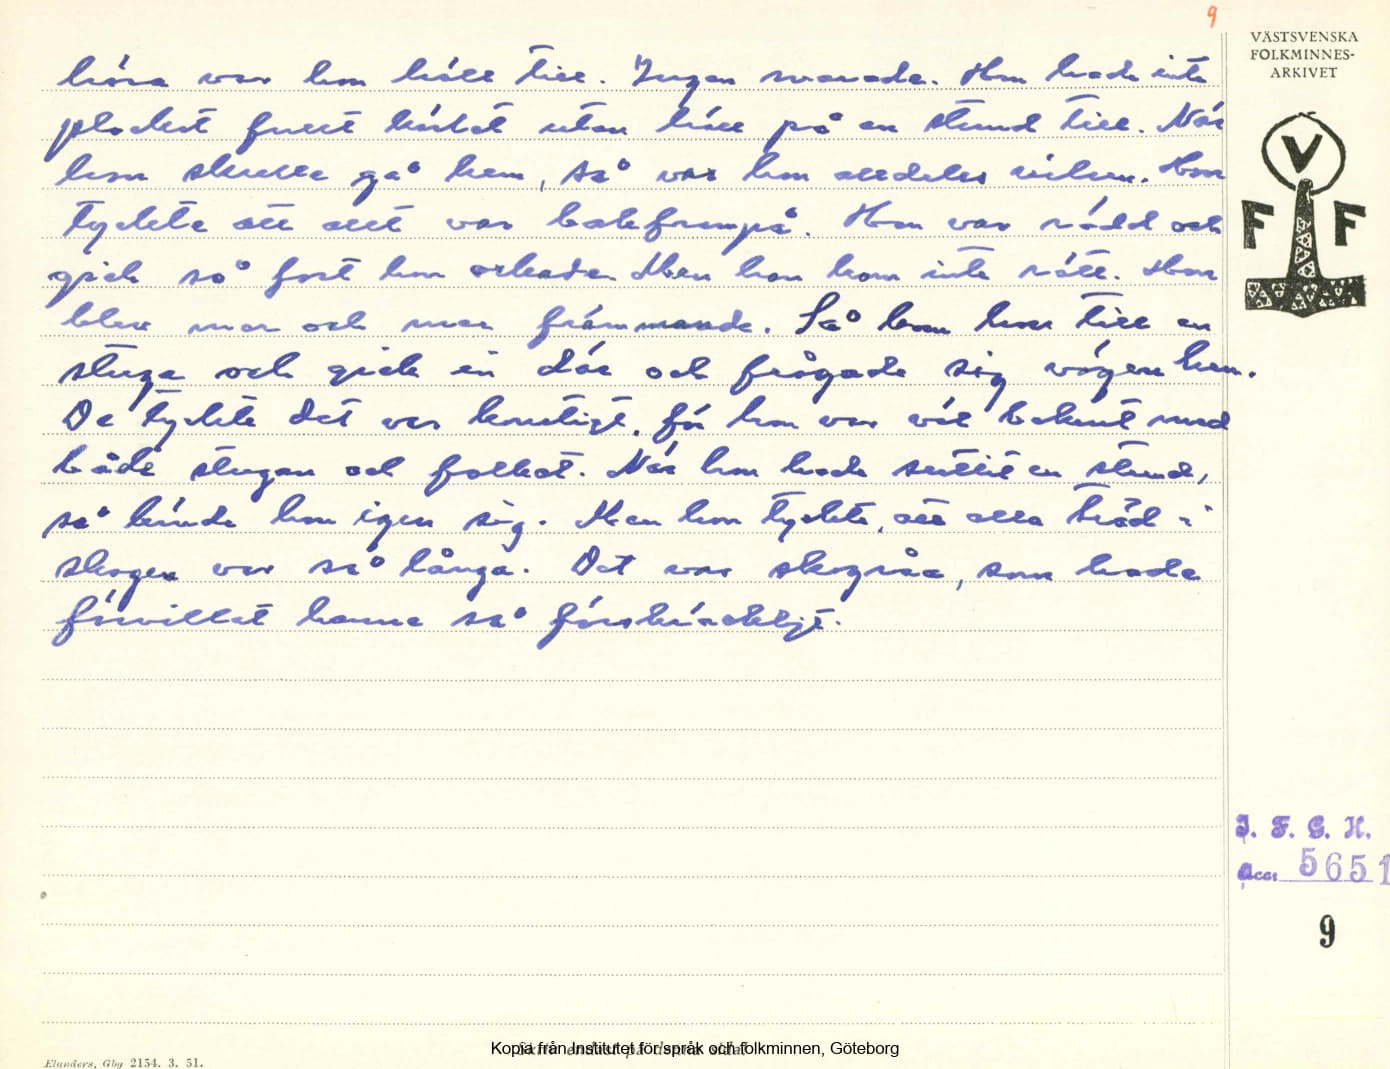 9
VÄSTSVENSKA
FOLKMINNES-
ARKIVET
höra var hon höll till. Ingen svarade. Hon hade inte
plockat fullt kärlet utan höll på en stund till. När
hon skulle gå hem, så var hon alldeles vilsen. Hon
tyckte att allt var bakframpå. Hon var rädd och
gick så fort hon orkade. Men hon kom inte rätt. Hon
blev mer och mer främmande. Så kom hon till en
stuga och gick in där och frågade sig vägen hem.
De tyckte det var konstigt, för hon var väl bekant med
både stugan och folket. När hon hade suttit en stund,
så kände hon igen sig. Men hon tyckte, att alla träd i
skogen var så långa. Det var skogsråa, som hade
förvillat henne så förskräckligt.
V
F F
I. F. G. H.
Acc: 5651
9
Kopia från Institutet för språk och folkminnen, Göteborg
Elanders, Gbg 2154. 3. 51.